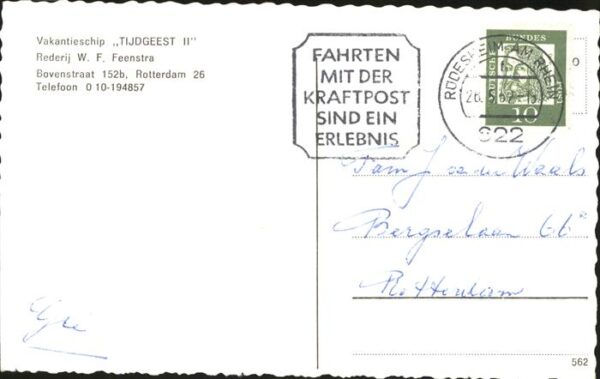 Vakantieschip „TIJDGEEST II"
Rederij W. F. Feenstra
Bovenstraat 152b, Rotterdam 26
Telefoon 0 10-194857
FAHRTEN
MIT DER
KRAFTPOST
SIND EIN
ERLEBNIS
RÜDESHEIM AM RHEIN
622
DEUTSCHE BUNDES
10
Fam J v. d. Waals
Bergselaan 66
Rotterdam
562